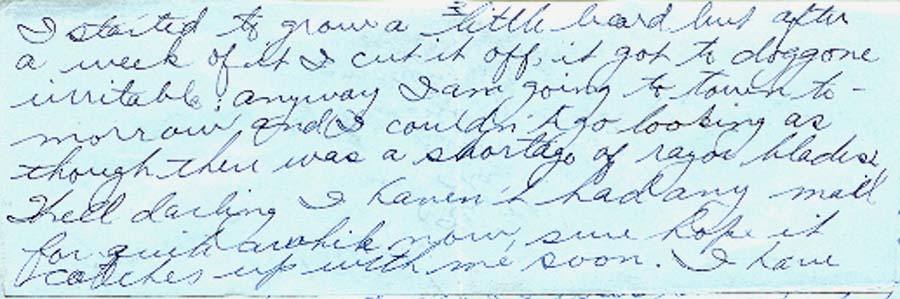 I started to grow a little beard but after
a week of it I cut it off, it got to doggone
irritable; anyway I am going to town to-
morrow and I couldn't go looking as
though ther was a shortage of razor blades,
Well darling I haven't had any mail
for quite awhile now, sure hope it
catches up with me soon. I have